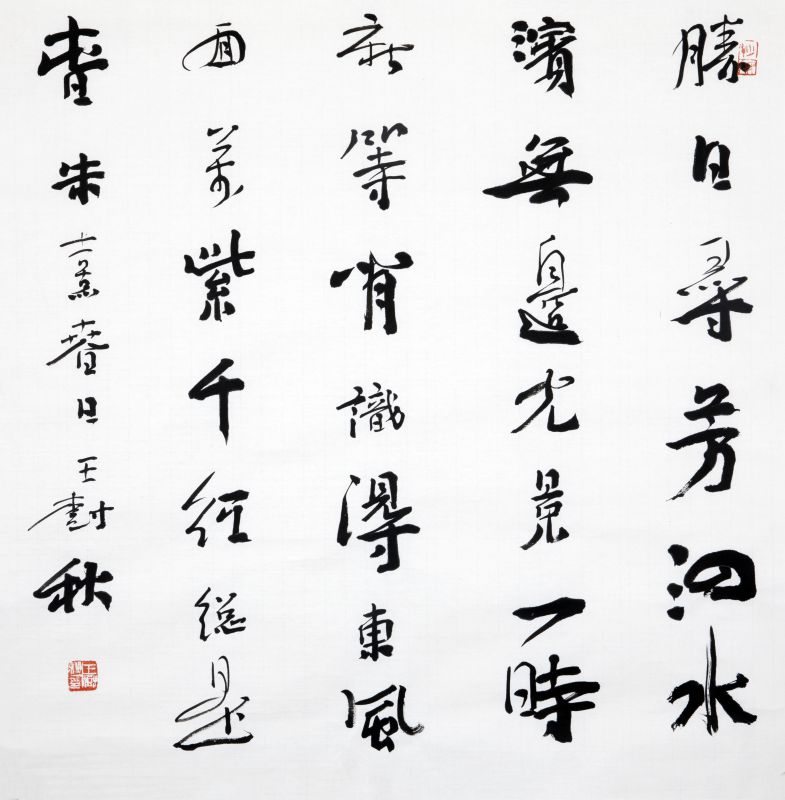 勝日尋芳泗水
濱無邊光景一時
新等閒識得東風
面萬紫千紅總是
春朱熹春日王樹秋